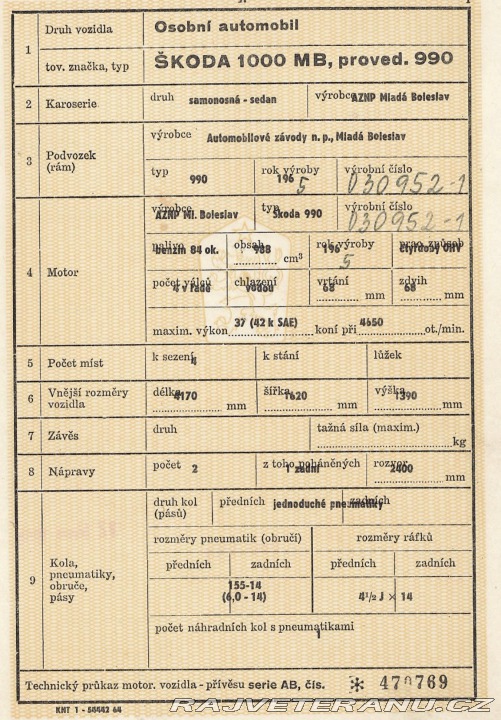 1 Druh vozidla Osobní automobil
tov. značka, typ ŠKODA 1000 MB, proved. 990
2 Karoserie druh samonosná - sedan výrobce AZNP Mladá Boleslav
výrobce Automobilové závody n. p., Mladá Boleslav
3 Podvozek (rám) typ 990 rok výroby 1965 výrobní číslo 030952-1
výrobce AZNP Ml. Boleslav typ Škoda 990 výrobní číslo 030952-1
palivo benzin 84 ok. obsah 988 cm³ rok výroby 1965 prac. způsob čtyřdobý OHV
4 Motor počet válců 4 v řadě chlazení vodou vrtání 68 mm zdvih 68 mm
maxim. výkon 37 (42 k SAE) koní při 4650 ot./min.
5 Počet míst k sezení 4 k stání lůžek
6 Vnější rozměry vozidla délka 4170 mm šířka 1620 mm výška 1390 mm
7 Závěs druh tažná síla (maxim.) kg
8 Nápravy počet 2 z toho poháněných 1 zadní rozvor 2400 mm
druh kol (pásů) předních jednoduché pneumatiky zadních
rozměry pneumatik (obručí) rozměry ráfků
9 Kola, pneumatiky, obruče, pásy předních zadních předních zadních
155-14
(6,0 - 14) 4¹/₂ J × 14
počet náhradních kol s pneumatikami 1
Technický průkaz motor. vozidla - přívěsu serie AB, čís. ✻ 470769
KNT 1 - 54442 64
RAJVETERANU.CZ